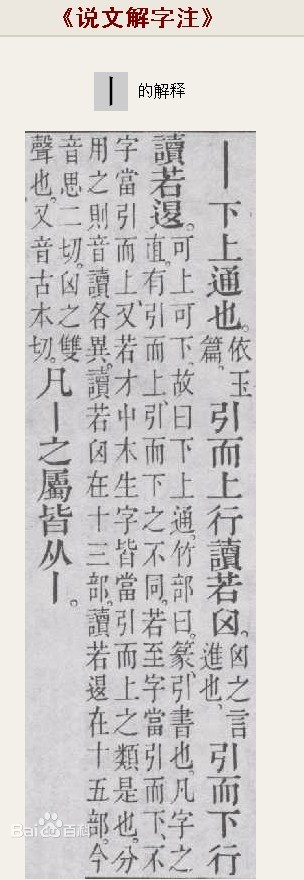 《说文解字注》
丨 的解释
丨下上通也。依玉篇。引而上行讀若囟。囟之言進也。引而下行
讀若𨓆。可上可下。故曰下上通。竹部曰。篆、引書也。凡字之
直。有引而上、引而下之不同。若至字當引而下、不
字當引而上、又若才中木生字皆當引而上之類是也。分
用之則音讀各異。讀若囟在十三部。讀若𨓆在十五部。今
音思二切。囟之雙
聲也。又音古本切。凡丨之屬皆从丨。
Bai百科